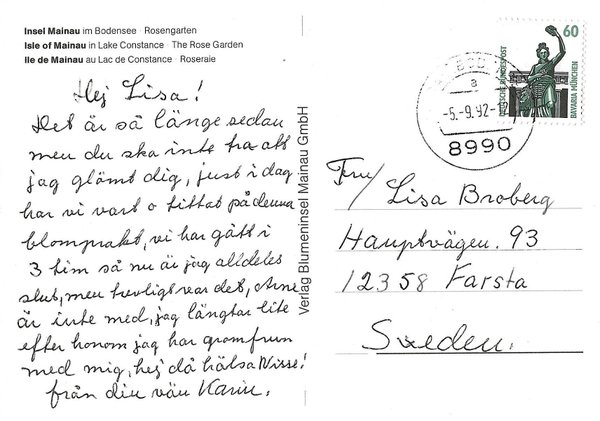 Insel Mainau im Bodensee · Rosengarten
Isle of Mainau in Lake Constance · The Rose Garden
Ile de Mainau au Lac de Constance · Roseraie
Hej Lisa!
Det är så länge sedan
men du ska inte tro att
jag glömt dig, just i dag
har vi vart o tittat på denna
blomprakt, vi har gått i
3 tim så nu är jag alldeles
slut, men trevligt var det, Arne
är inte med, jag längtar lite
efter honom jag har gromfrun
med mig, hej då hälsa Nisse!
från din vän Karin.
Verlag Blumeninsel Mainau GmbH
a
-5.-9.92-12
8990
60
DEUTSCHE BUNDESPOST
BAVARIA MÜNCHEN
Fru/Lisa Broberg
Hauptvägen. 93
12358 Farsta
Sweden.